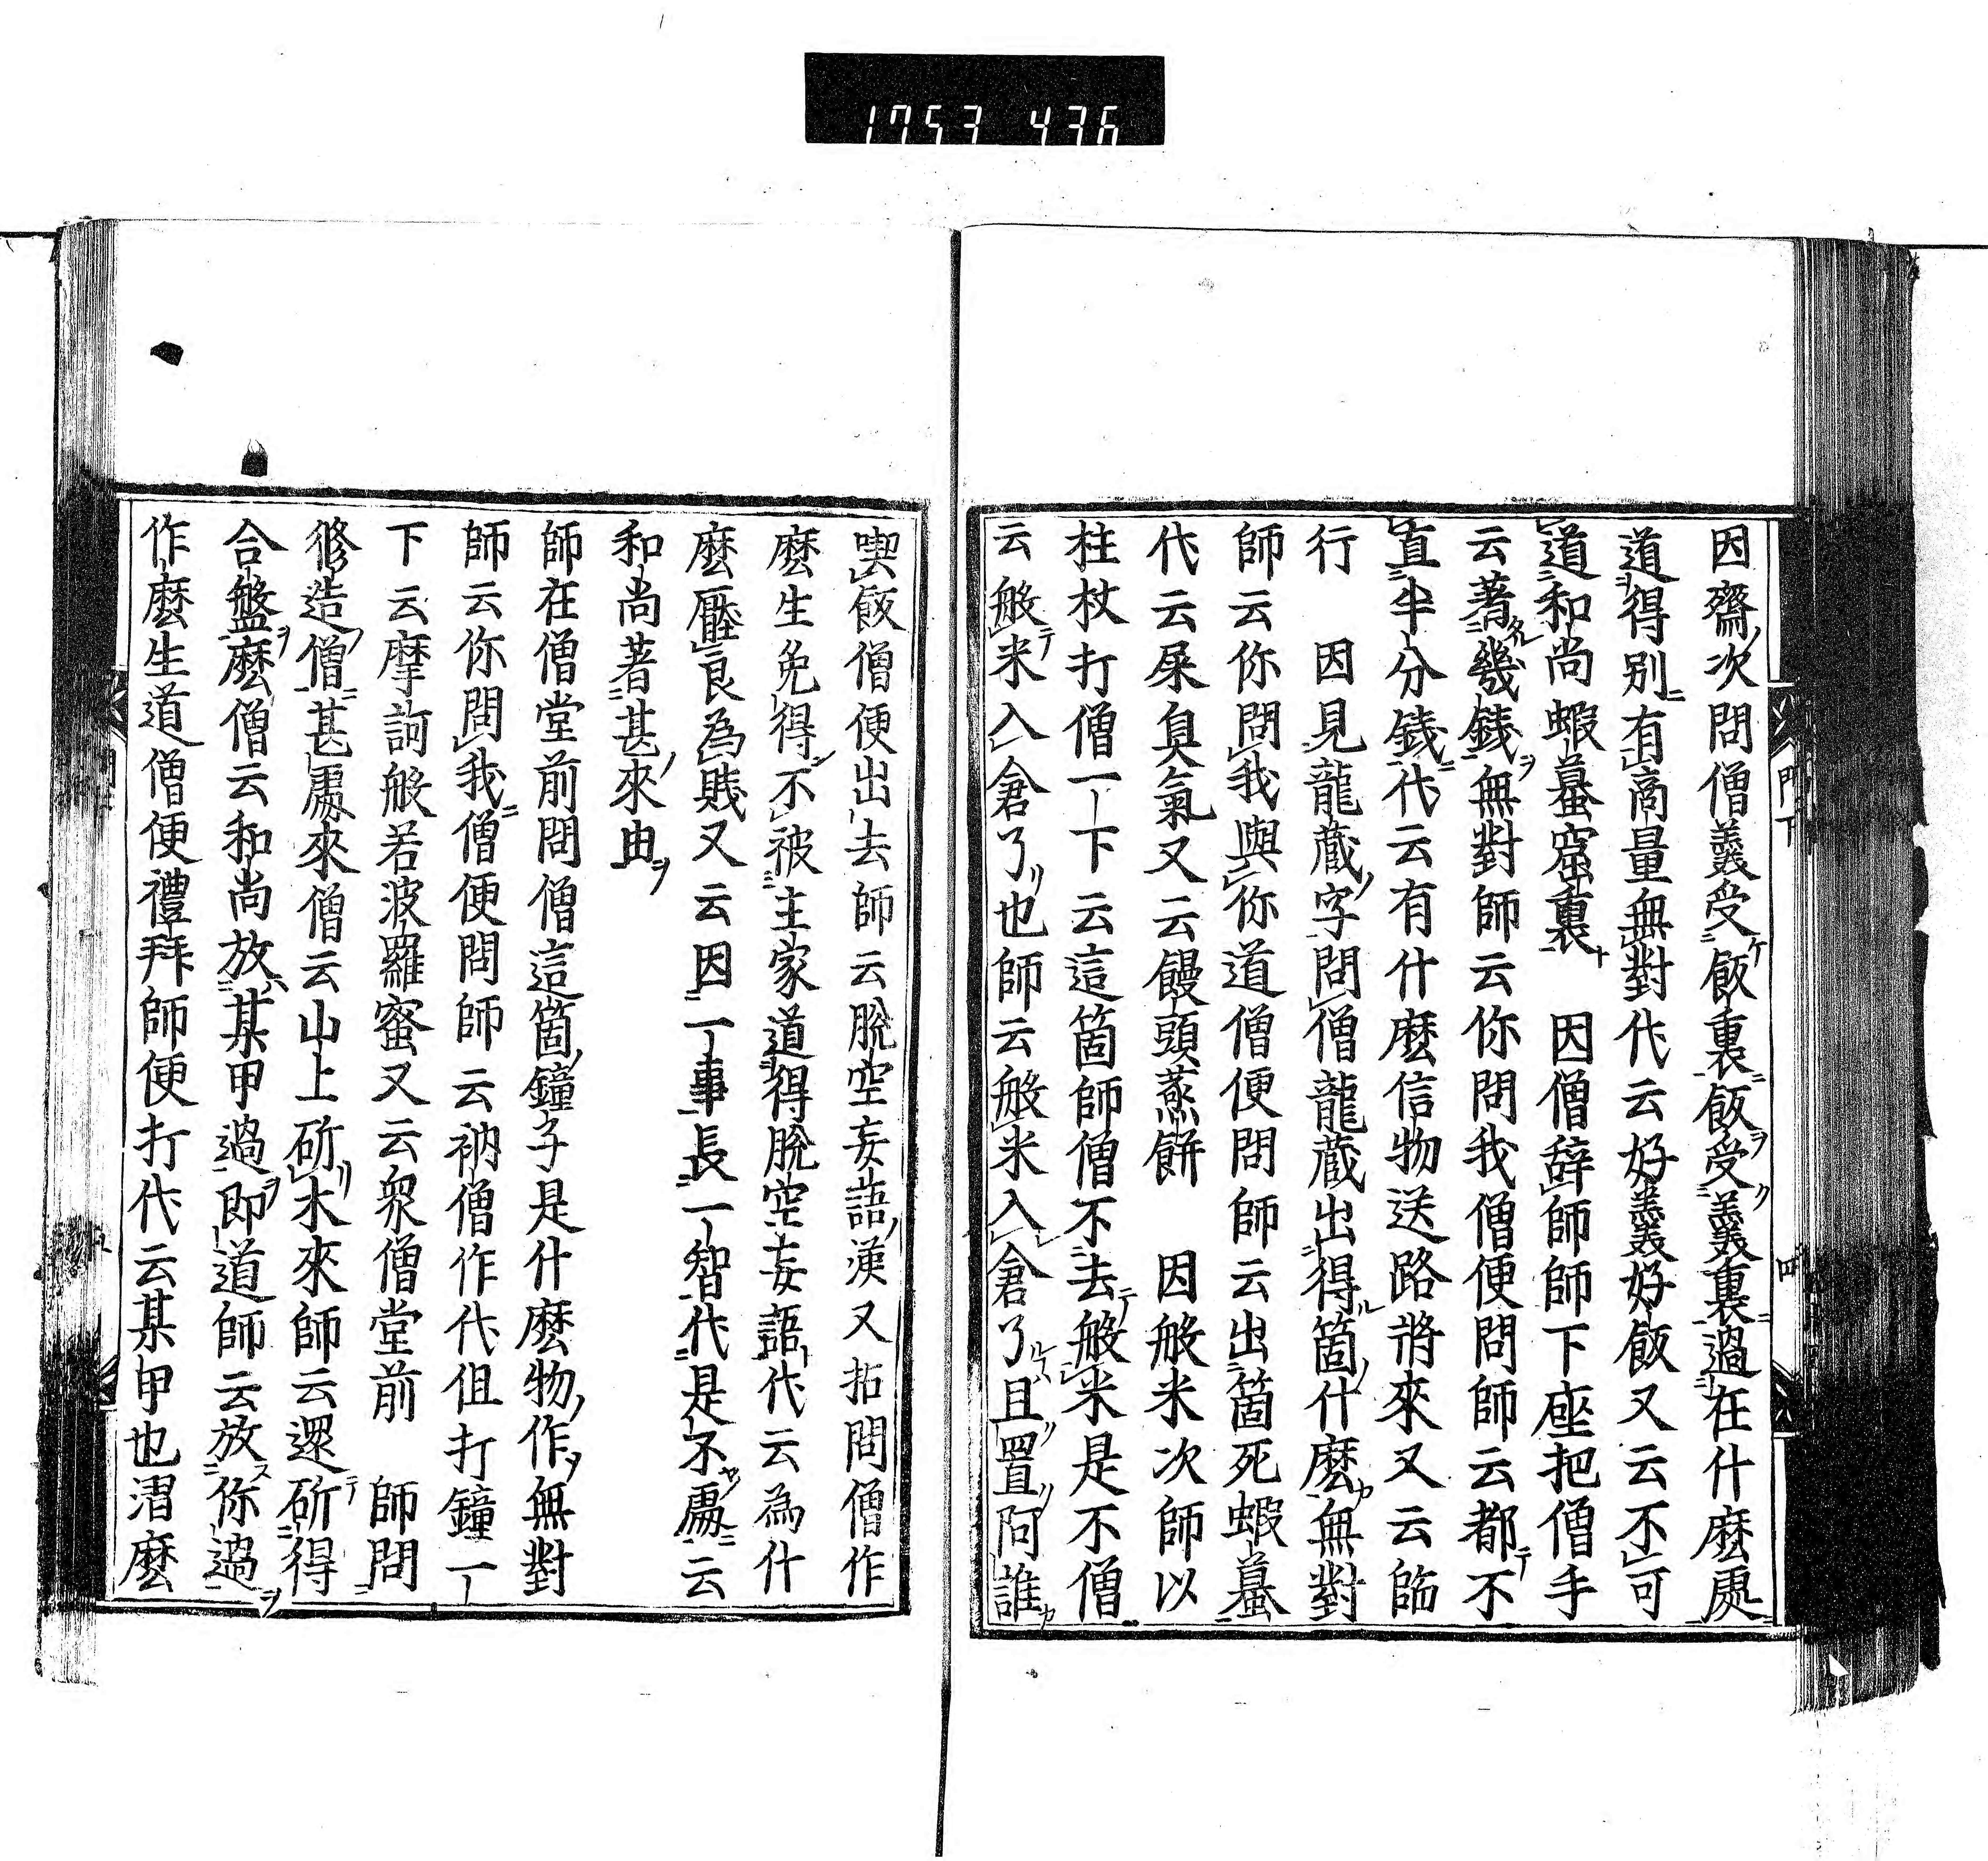 1753 436
因齋次問僧羹受飯裏飯受羹裏過在什麼處
道得別有商量無對代云好羹好飯又云不可
道和尚蝦䗫窟裏　因僧辭師師下座把僧手
云著幾錢無對師云你問我僧便問師云都不
直半分錢代云有什麼信物送路將來又云臨
行　因見龍藏字問僧龍藏出得箇什麼無對
師云你問我與你道僧便問師云出箇死蝦䗫
代云屎臭氣又云饅頭蒸餅　因般米次師以
柱杖打僧一下云這箇師僧不去般米是不僧
云般米入倉了也師云般米入倉了且置阿誰
門下
四
喫飯僧便出去師云脫空妄語漢又拈問僧作
麼生免得不被主家道得脫空妄語代云為什
麼壓良為賤又云因一事長一智代是不處云
和尚著甚來由
師在僧堂前問僧這箇鐘子是什麼物作無對
師云你問我僧便問師云衲僧作代但打鐘一
下云摩訶般若波羅蜜又云衆僧堂前　師問
修造僧甚處來僧云山上斫木來師云還斫得
合盤麼僧云和尚放某甲過即道師云放你過
作麼生道僧便禮拜師便打代云某甲也潛麼